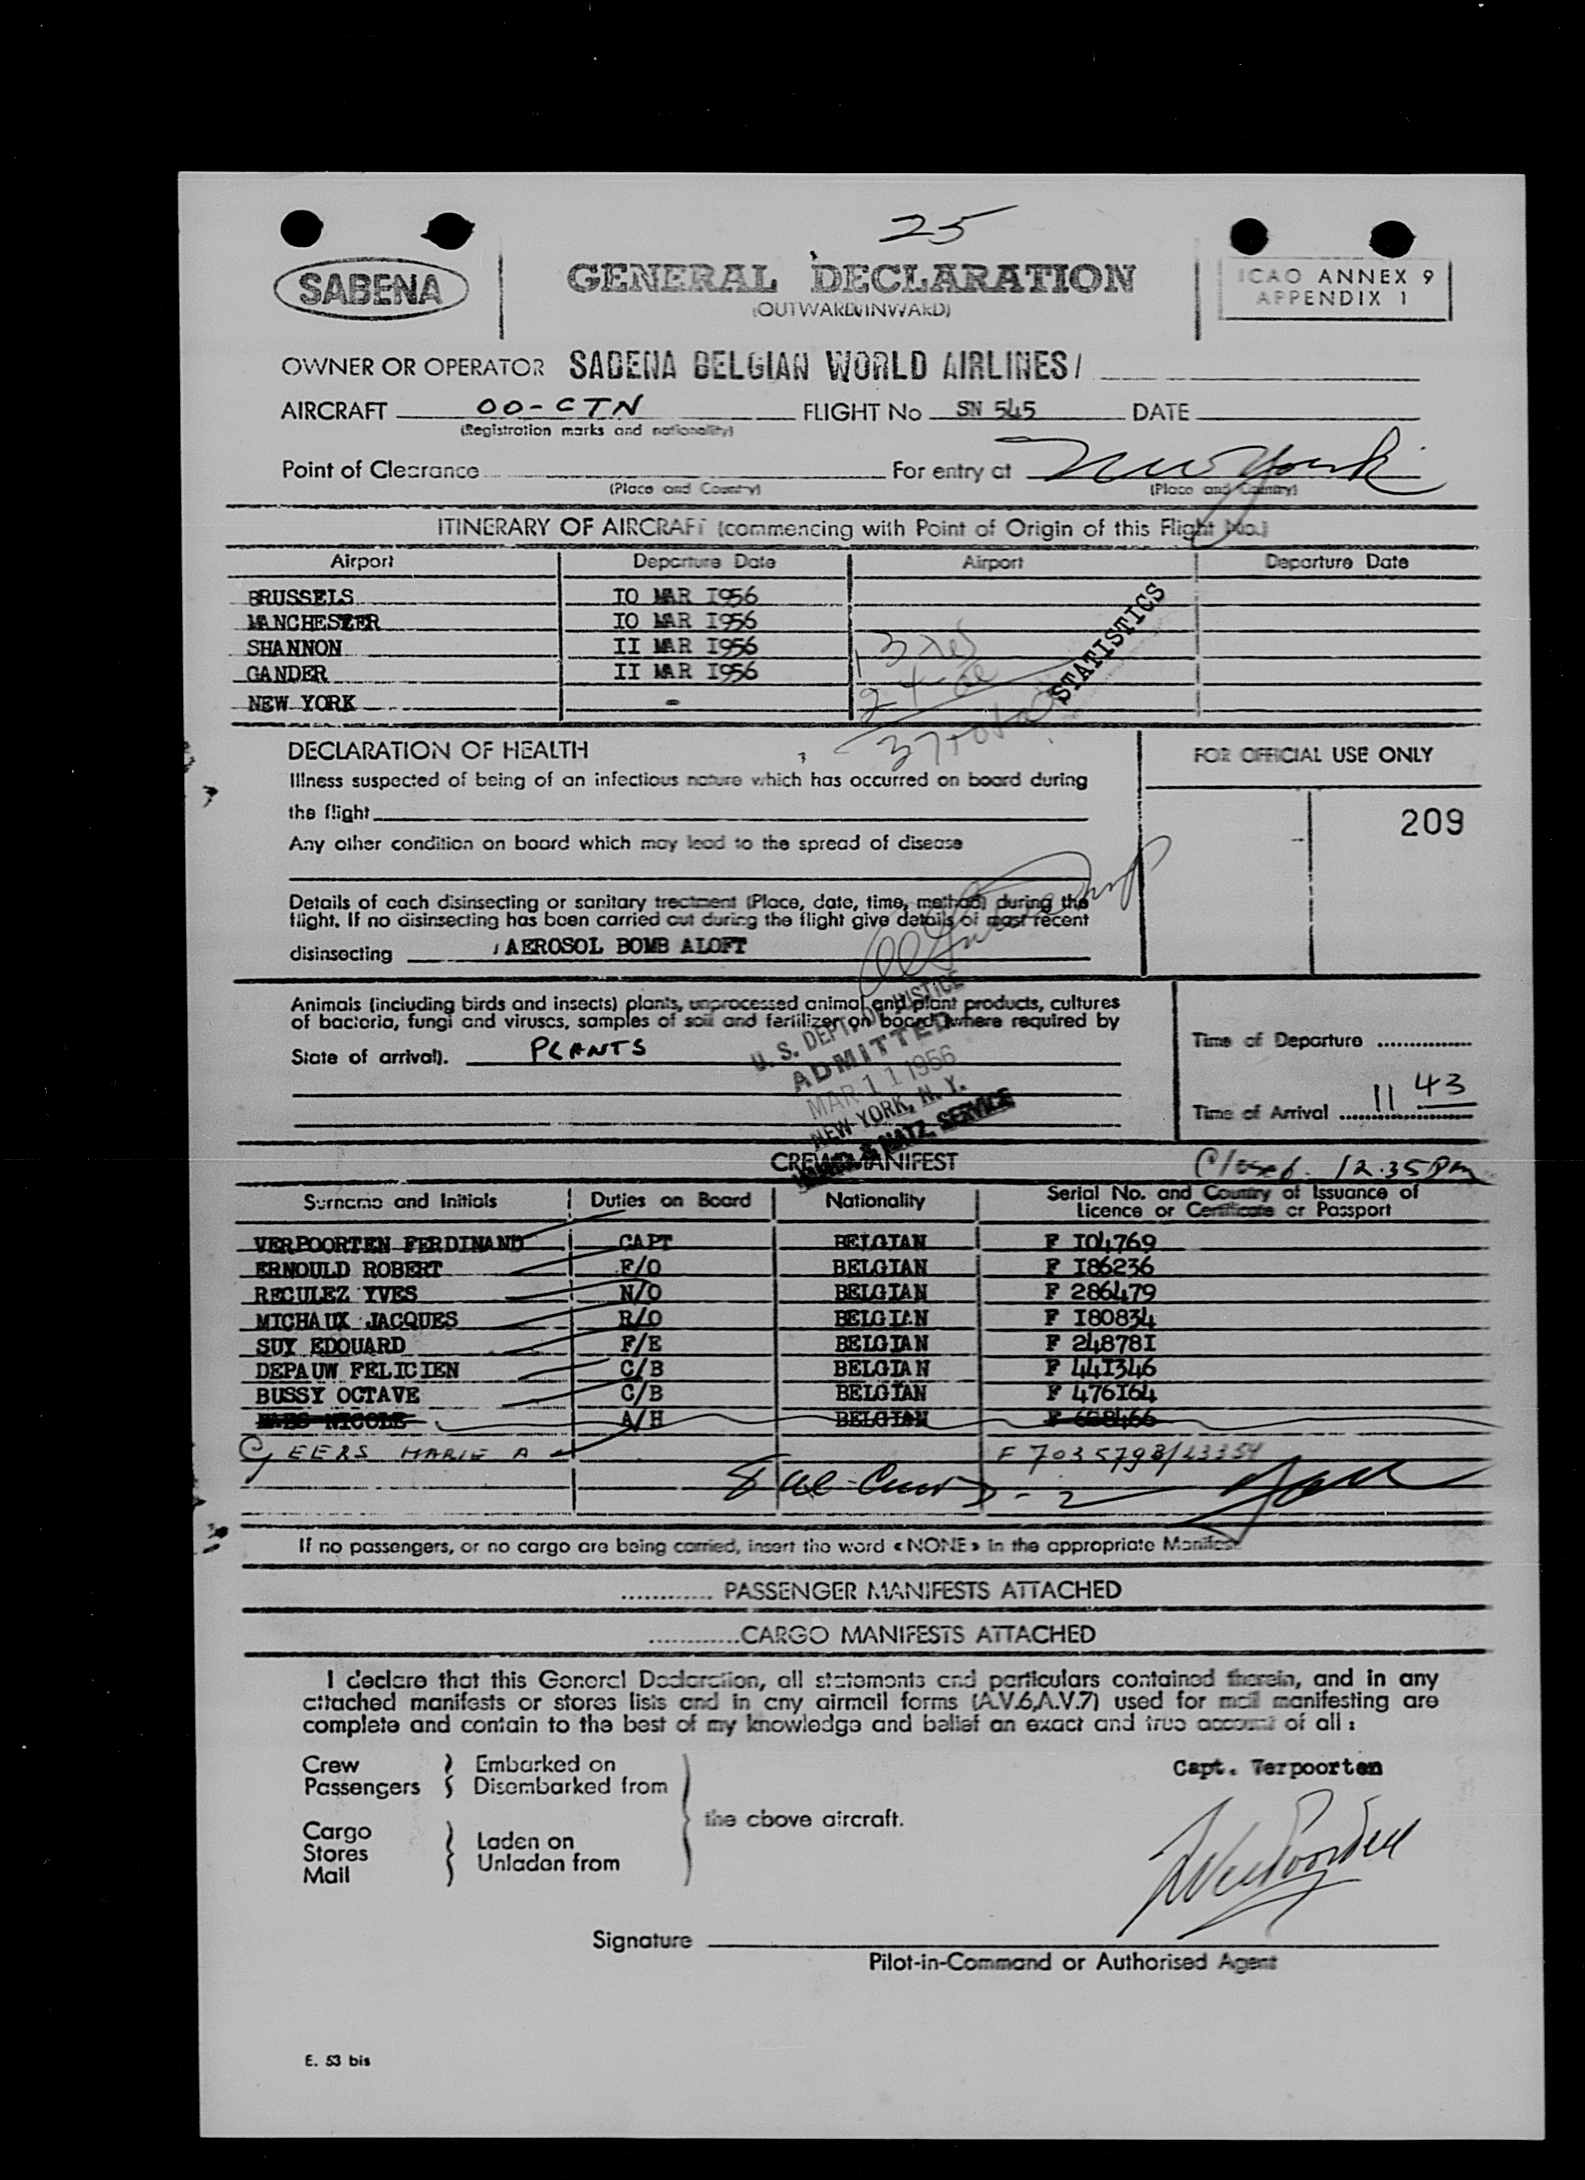 25
SABENA
GENERAL DECLARATION
(OUTWARD/INWARD)
ICAO ANNEX 9
APPENDIX 1
OWNER OR OPERATOR SABENA BELGIAN WORLD AIRLINES/
AIRCRAFT OO-CTN FLIGHT No SN 545 DATE
(Registration marks and nationality)
Point of Clearance For entry at New York
(Place and Country) (Place and Country)
ITINERARY OF AIRCRAFT (commencing with Point of Origin of this Flight No.)
Airport Departure Date Airport Departure Date
BRUSSELS IO MAR I956
MANCHESTER IO MAR I956
SHANNON II MAR I956
GANDER II MAR I956
NEW YORK -
STATISTICS
37 total
DECLARATION OF HEALTH
Illness suspected of being of an infectious nature which has occurred on board during
the flight
Any other condition on board which may lead to the spread of disease
Details of each disinsecting or sanitary treatment (Place, date, time, method) during the
flight. If no disinsecting has been carried out during the flight give details of most recent
disinsecting AEROSOL BOMB ALOFT
FOR OFFICIAL USE ONLY
209
Animals (including birds and insects) plants, unprocessed animal and plant products, cultures
of bacteria, fungi and viruses, samples of soil and fertilizer on board (where required by
State of arrival). PLANTS
U. S. DEPT. OF JUSTICE
ADMITTED
MAR 11 1956
NEW YORK, N. Y.
IMMIG. & NATZ. SERVICE
Time of Departure
Time of Arrival 11 43
CREW MANIFEST
Closed. 12.35 Pm
Surname and Initials Duties on Board Nationality Serial No. and Country of Issuance of
Licence or Certificate or Passport
VERPOORTEN FERDINAND CAPT BELGIAN F I04769
ERNOULD ROBERT F/O BELGIAN F I86236
RECULEZ YVES N/O BELGIAN F 286479
MICHAUX JACQUES R/O BELGIAN F I80834
SUY EDOUARD F/E BELGIAN F 24878I
DEPAUW FELICIEN C/B BELGIAN F 44I346
BUSSY OCTAVE C/B BELGIAN F 476I64
NICOLE A/H BELGIAN F
GEERS MARIE A F 703579B/23354
If no passengers, or no cargo are being carried, insert the word «NONE» in the appropriate Manifest
............ PASSENGER MANIFESTS ATTACHED
............CARGO MANIFESTS ATTACHED
I declare that this General Declaration, all statements and particulars contained therein, and in any
attached manifests or stores lists and in any airmail forms (A.V.6,A.V.7) used for mail manifesting are
complete and contain to the best of my knowledge and belief an exact and true account of all :
Crew Embarked on
Passengers Disembarked from
the above aircraft.
Cargo Laden on
Stores Unladen from
Mail
Capt. Verpoorten
Signature
Pilot-in-Command or Authorised Agent
E. 53 bis